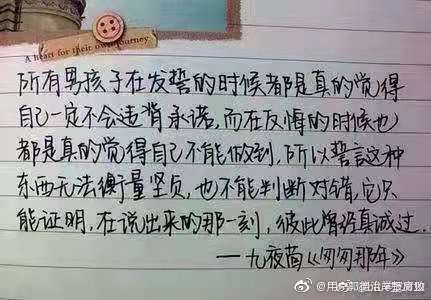 A heart for their own journey
所有男孩子在发誓的时候都是真的觉得
自己一定不会违背承诺,而在反悔的时候也
都是真的觉得自己不能做到,所以誓言这种
东西无法衡量坚贞,也不能判断对错,它只
能证明,在说出来的那一刻,彼此曾经真诚过.
—九夜茴《匆匆那年》